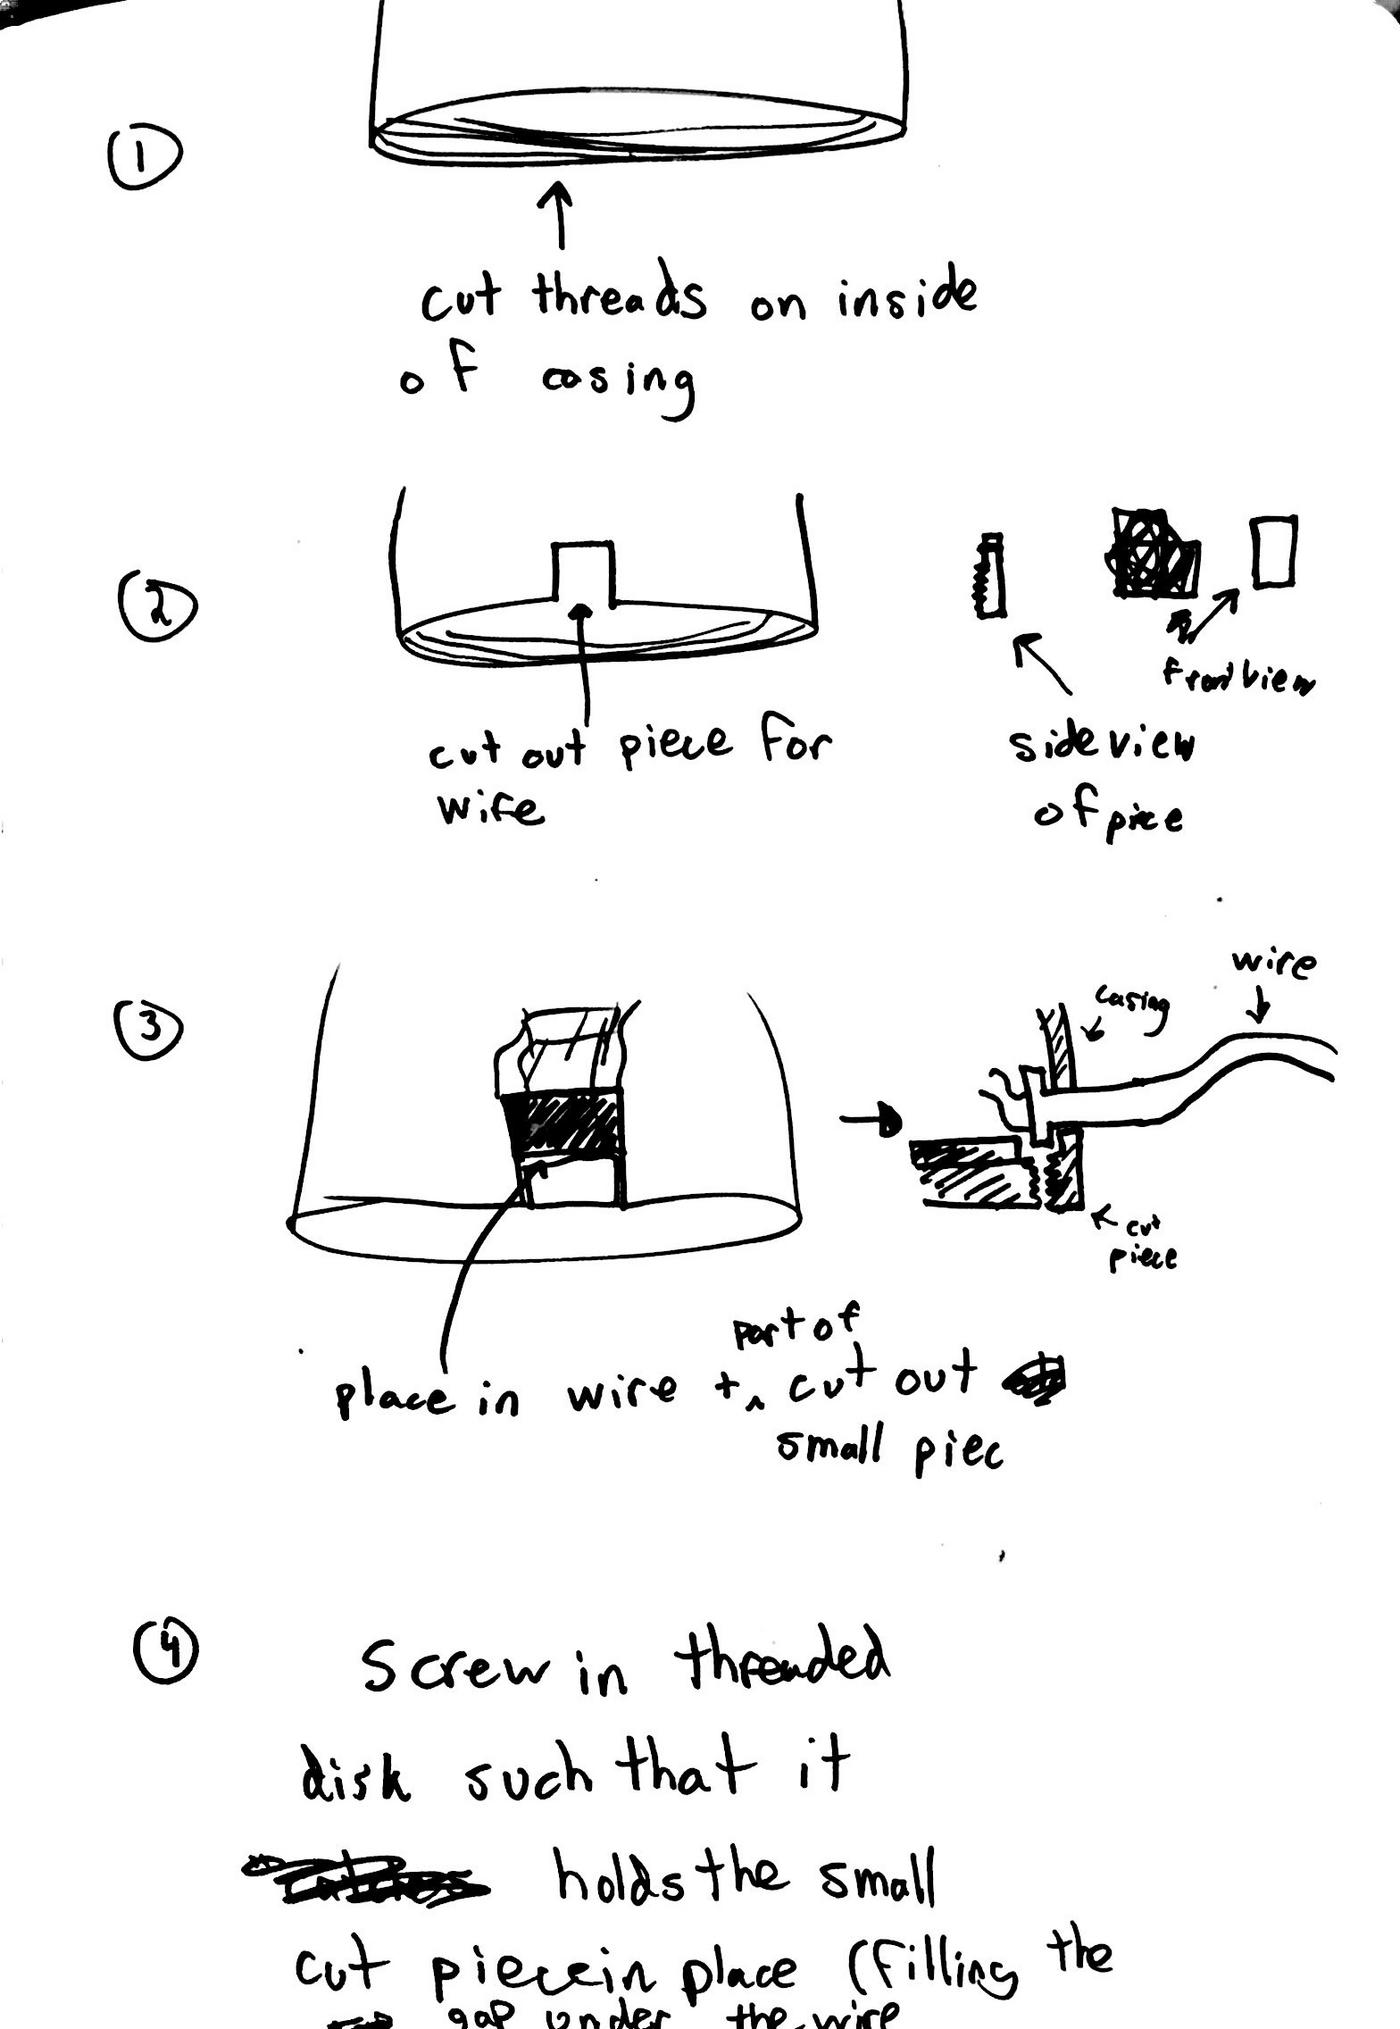 1
cut threads on inside
of casing
2
cut out piece for
wire
front view
side view
of piece
3
wire
casing
cut
piece
part of
place in wire + ^ cut out
small piec
4
Screw in threaded
disk such that it
holds the small
cut piece in place (filling the
gap under the wire